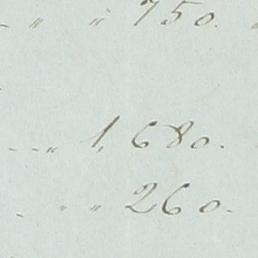 " " 750.
" 1,680.
" " 260.